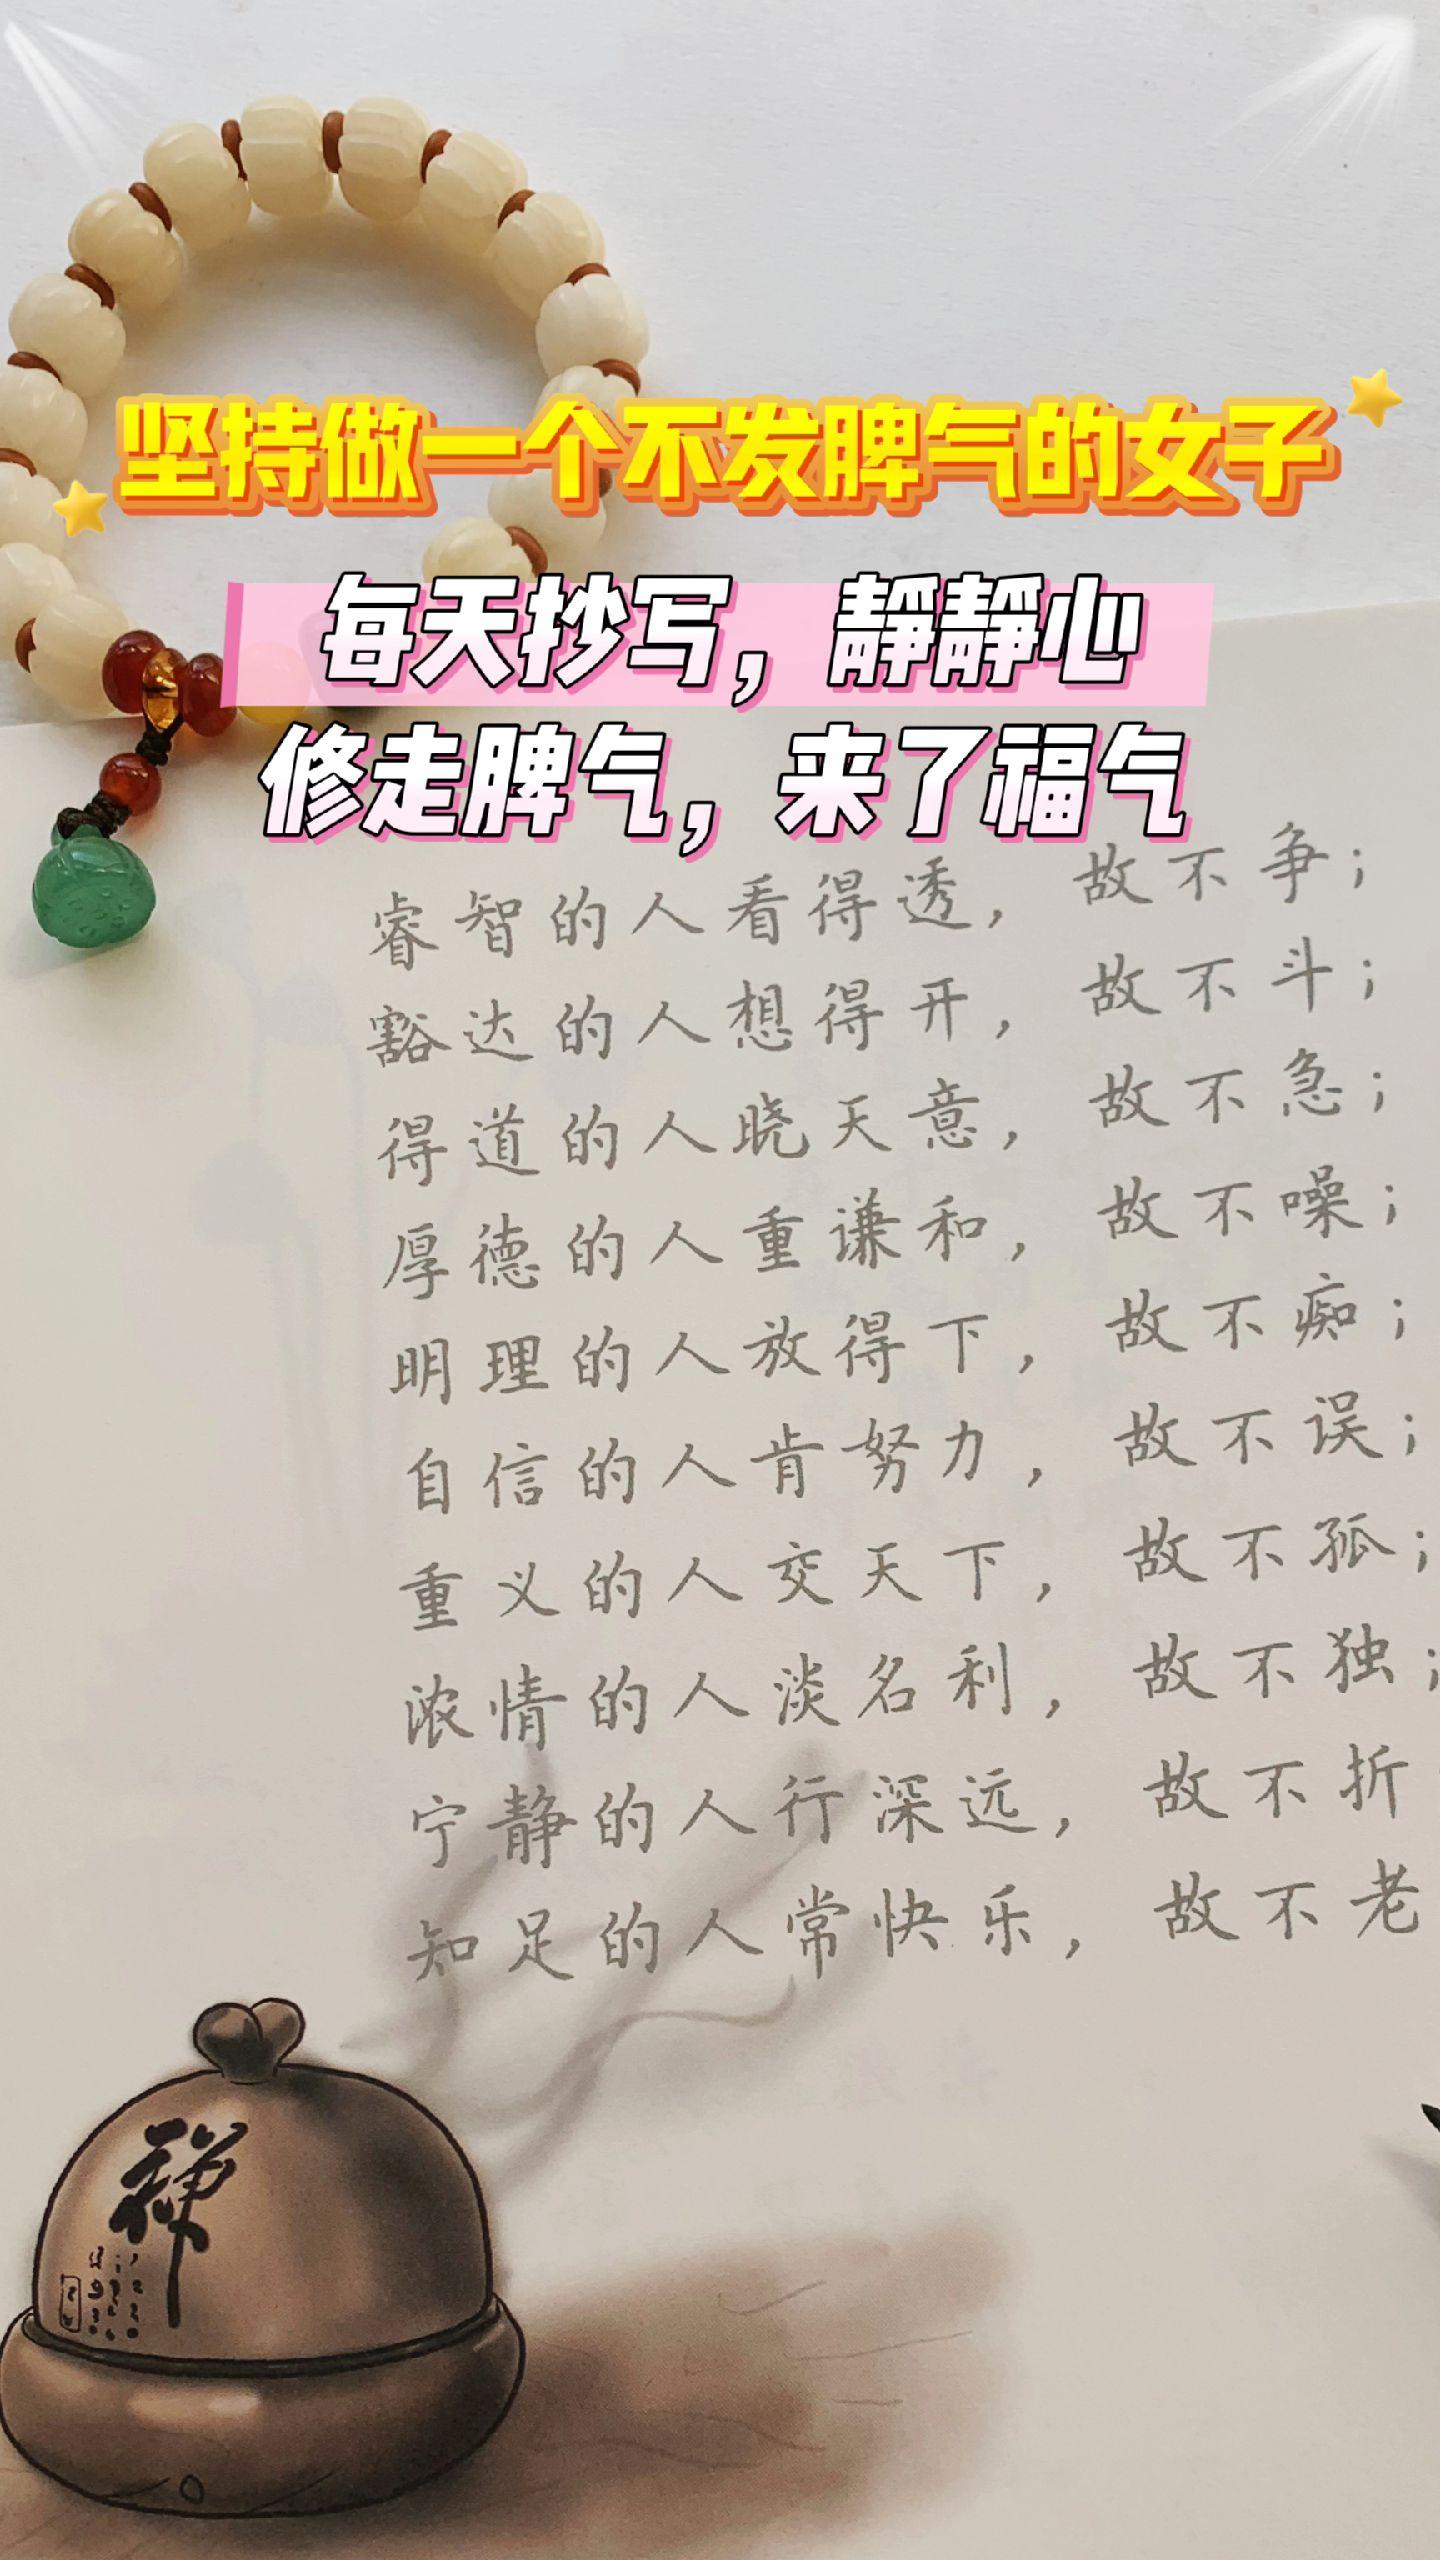 坚持做一个不发脾气的女子
每天抄写，静静心
修走脾气，来了福气
睿智的人看得透，故不争；
豁达的人想得开，故不斗；
得道的人晓天意，故不急；
厚德的人重谦和，故不噪；
明理的人放得下，故不痴；
自信的人肯努力，故不误；
重义的人交天下，故不孤；
浓情的人淡名利，故不独；
宁静的人行深远，故不折
知足的人常快乐，故不老
禅